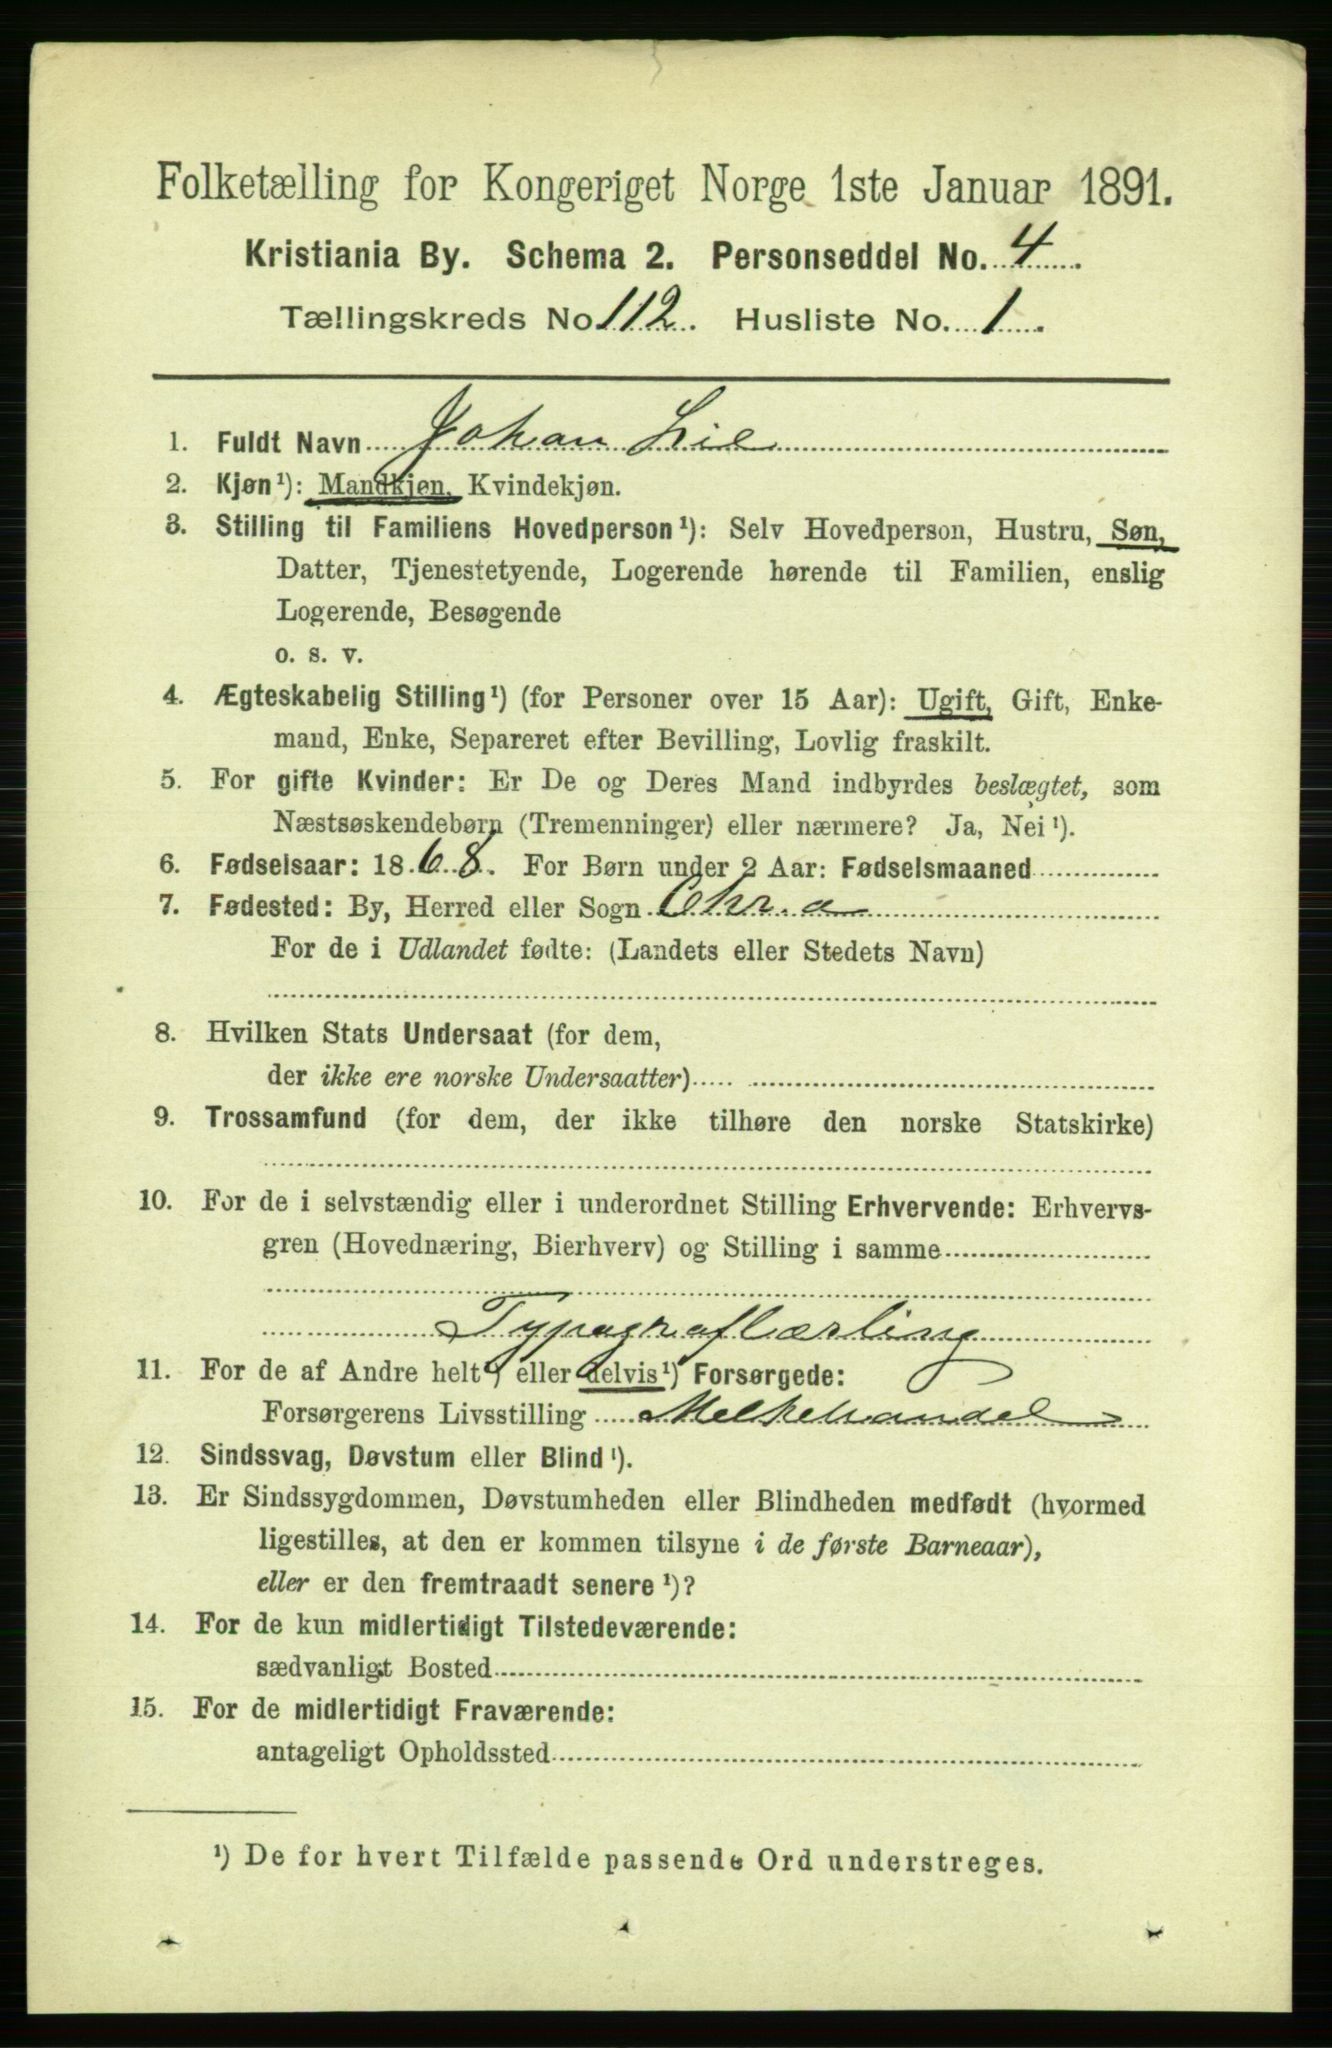 Folketælling for Kongeriget Norge 1ste Januar 1891.
Kristiania By. Schema 2. Personseddel No. 4
Tællingskreds No 112. Husliste No. 1.
1. Fuldt Navn Johan Lie
2. Kjøn¹): Mandkjøn, Kvindekjøn.
3. Stilling til Familiens Hovedperson¹): Selv Hovedperson, Hustru, Søn,
Datter, Tjenestetyende, Logerende hørende til Familien, enslig
Logerende, Besøgende
o. s. v.
4. Ægteskabelig Stilling¹) (for Personer over 15 Aar): Ugift, Gift, Enke-
mand, Enke, Separeret efter Bevilling, Lovlig fraskilt.
5. For gifte Kvinder: Er De og Deres Mand indbyrdes beslægtet, som
Næstsøskendebørn (Tremenninger) eller nærmere? Ja, Nei¹).
6. Fødselsaar: 1868. For Børn under 2 Aar: Fødselsmaaned
7. Fødested: By, Herred eller Sogn Chr.a
For de i Udlandet fødte: (Landets eller Stedets Navn)
8. Hvilken Stats Undersaat (for dem,
der ikke ere norske Undersaatter)
9. Trossamfund (for dem, der ikke tilhøre den norske Statskirke)
10. For de i selvstændig eller i underordnet Stilling Erhvervende: Erhvervs-
gren (Hovednæring, Bierhverv) og Stilling i samme
Typograflærling
11. For de af Andre helt¹) eller delvis¹) Forsørgede:
Forsørgerens Livsstilling Melkehandel
12. Sindssvag, Døvstum eller Blind¹).
13. Er Sindssygdommen, Døvstumheden eller Blindheden medfødt (hvormed
ligestilles, at den er kommen tilsyne i de første Barneaar),
eller er den fremtraadt senere¹)?
14. For de kun midlertidigt Tilstedeværende:
sædvanligt Bosted
15. For de midlertidigt Fraværende:
antageligt Opholdssted
¹) De for hvert Tilfælde passende Ord understreges.